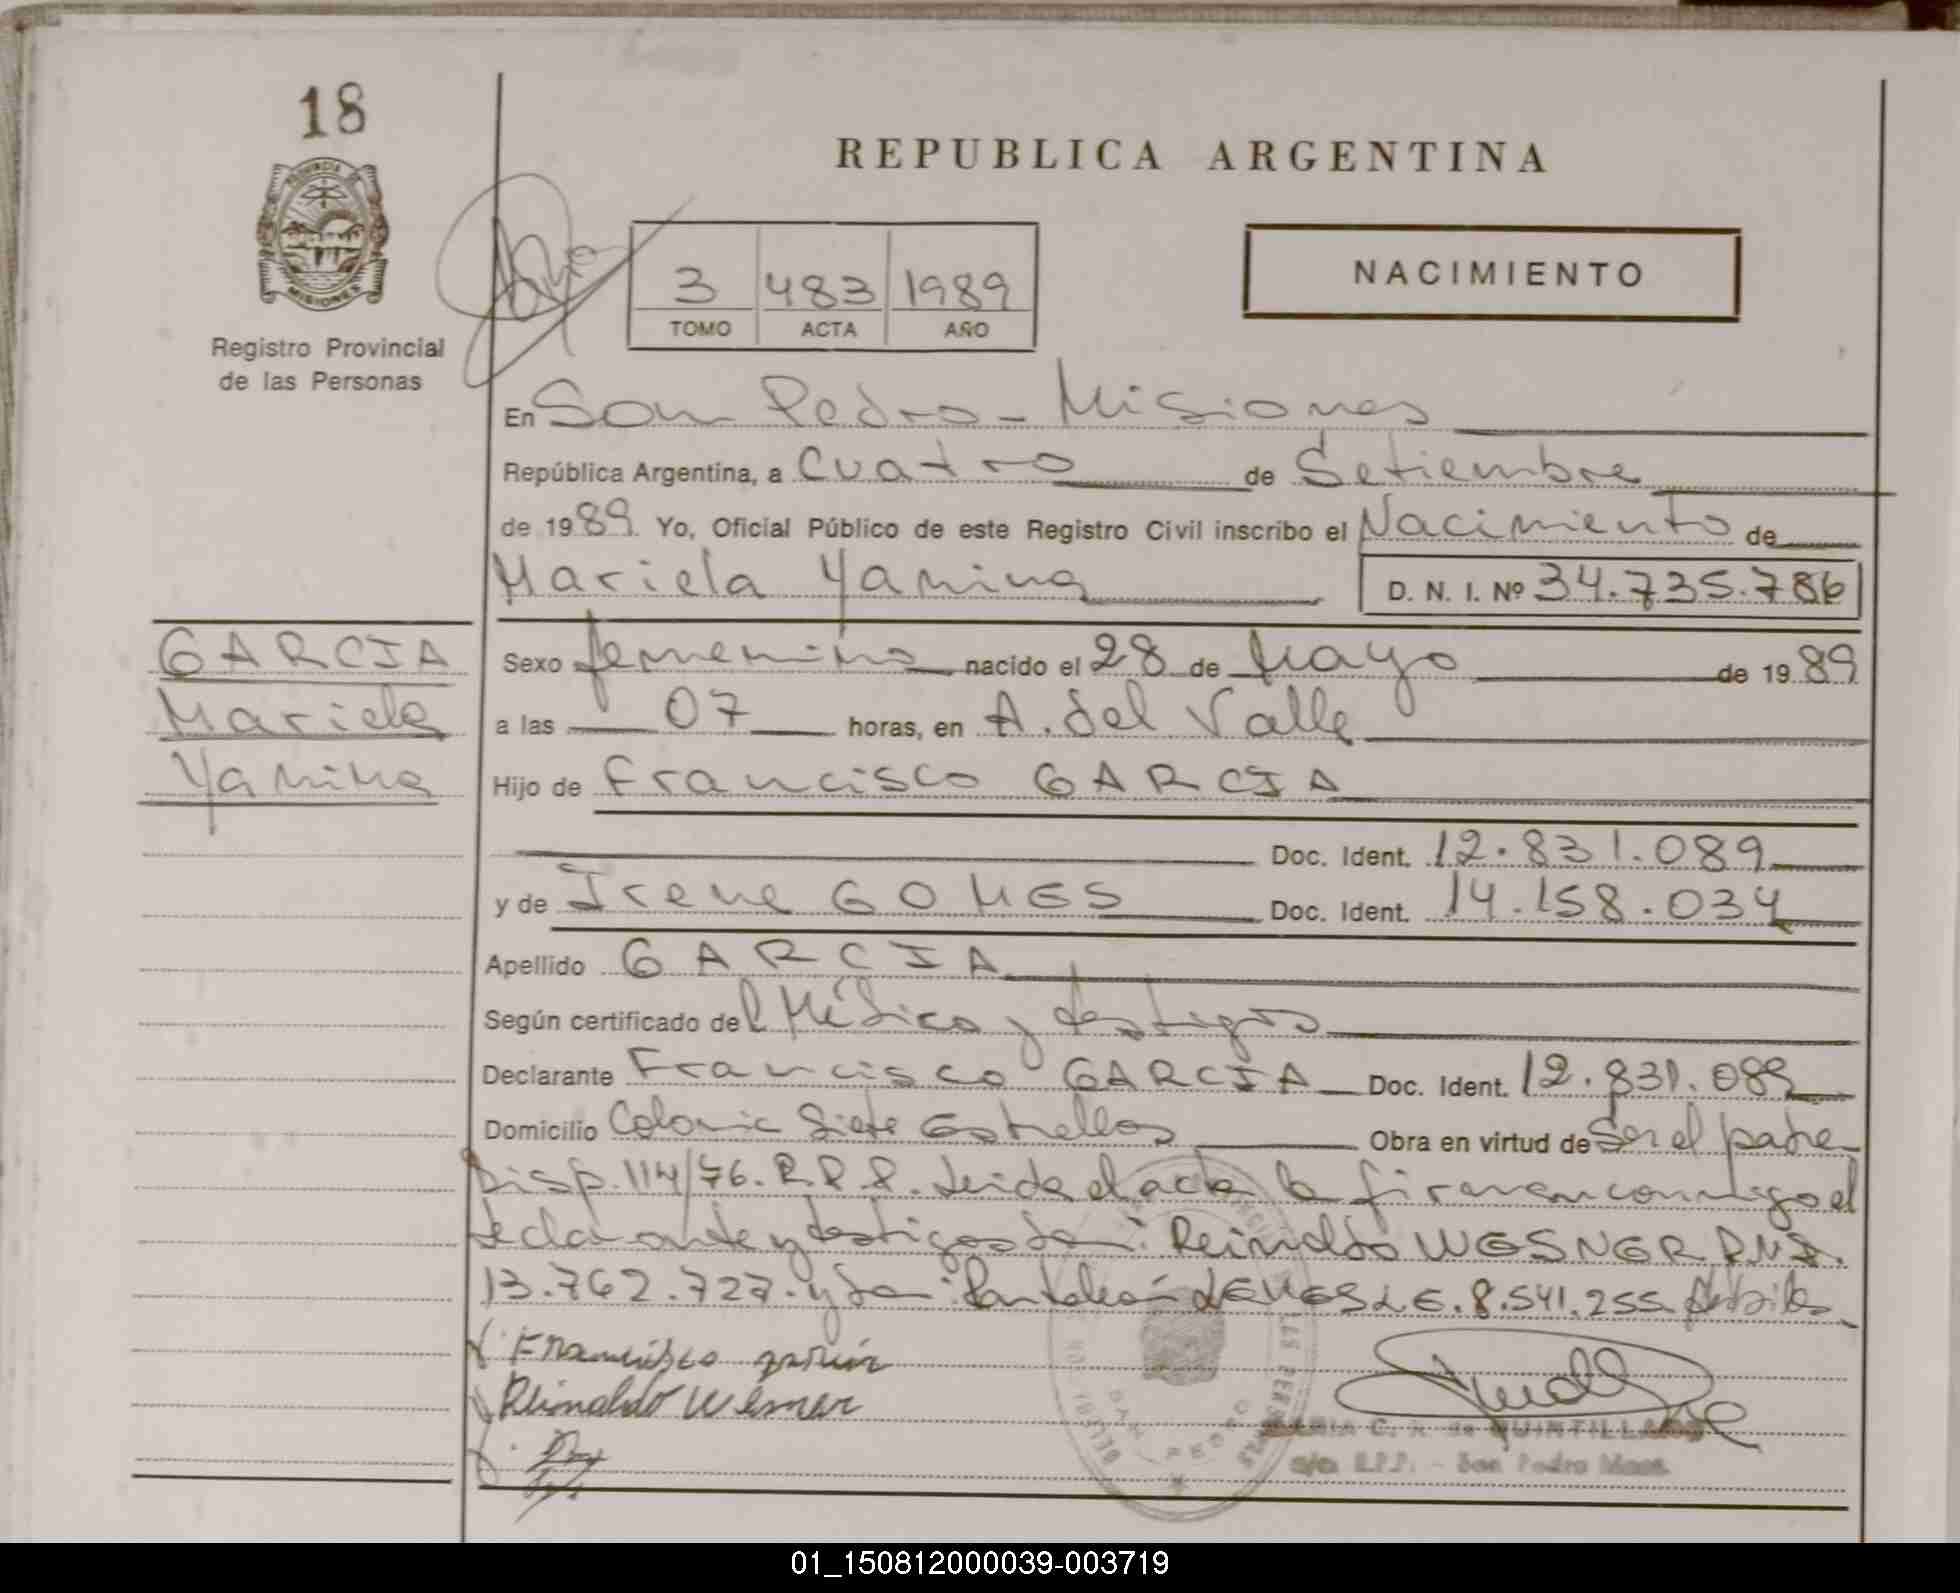 18
REPUBLICA ARGENTINA
PROVINCIA DE
MISIONES
Registro Provincial
de las Personas
3 483 1989
TOMO ACTA AÑO
NACIMIENTO
En San Pedro - Misiones
República Argentina, a Cuatro de Setiembre
de 1989. Yo, Oficial Público de este Registro Civil inscribo el Nacimiento de
Mariela Yanina D. N. I. Nº 34.735.786
GARCIA
Mariela
Yanina
Sexo femenino nacido el 28 de Mayo de 1989
a las 07 horas, en A. del Valle
Hijo de Francisco GARCIA
Doc. Ident. 12.831.089
y de Irene GOMES Doc. Ident. 14.158.034
Apellido GARCIA
Según certificado del Médico y testigos
Declarante Francisco GARCIA Doc. Ident. 12.831.089
Domicilio Colonia Siete Estrellas Obra en virtud de Ser el padre
Disp. 114/76. R.P.P. Leida el acta la firman conmigo el
declarante y testigos Don: Reinaldo WESNER D.N.I.
13.762.727. y Don: Pantaleón LEMES L.E. 8.541.255
Francisco garcia
Reinaldo Wesner
MARIA C. de QUINTILLAN
a/c. R.P.P. - San Pedro Mnes.
01_150812000039-003719